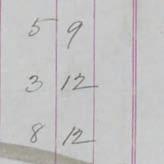 5 9
3 12
8 12